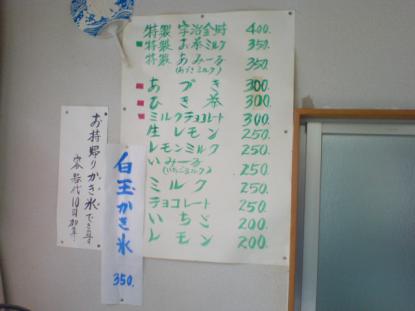 特製 宇治金時 400.
特製 お茶ミルク 350.
特製 あみーる 350.
(あづきミルク)
あづき 300.
ひき茶 300.
ミルクチョコレート 300.
生レモン 250.
レモンミルク 250.
いみーる 250.
(いちごミルク)
ミルク 250.
チョコレート 250.
いちご 200.
レモン 200.
白玉かき氷 350.
お持帰りかき氷できます